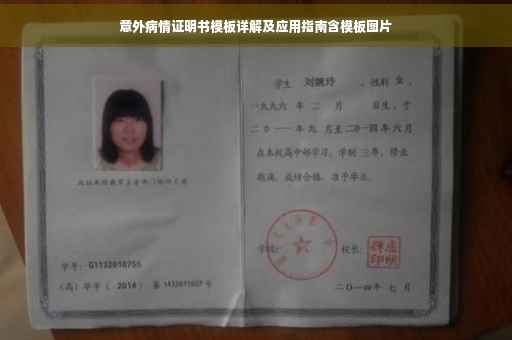 意外病情证明书模板详解及应用指南含模板图片
学生 刘婉玲 ，性别 女 ，
一九九六 年 二 月 日生，于
二〇一一 年 九 月至 二〇一四 年 六 月
在本校高中部学习，学制 三 年，修业
期满，成绩合格，准予毕业。
学号：G1132010755
（高）毕字（ 2014 ）第 1432011607 号
学校：
校长：
二〇一四年 七 月